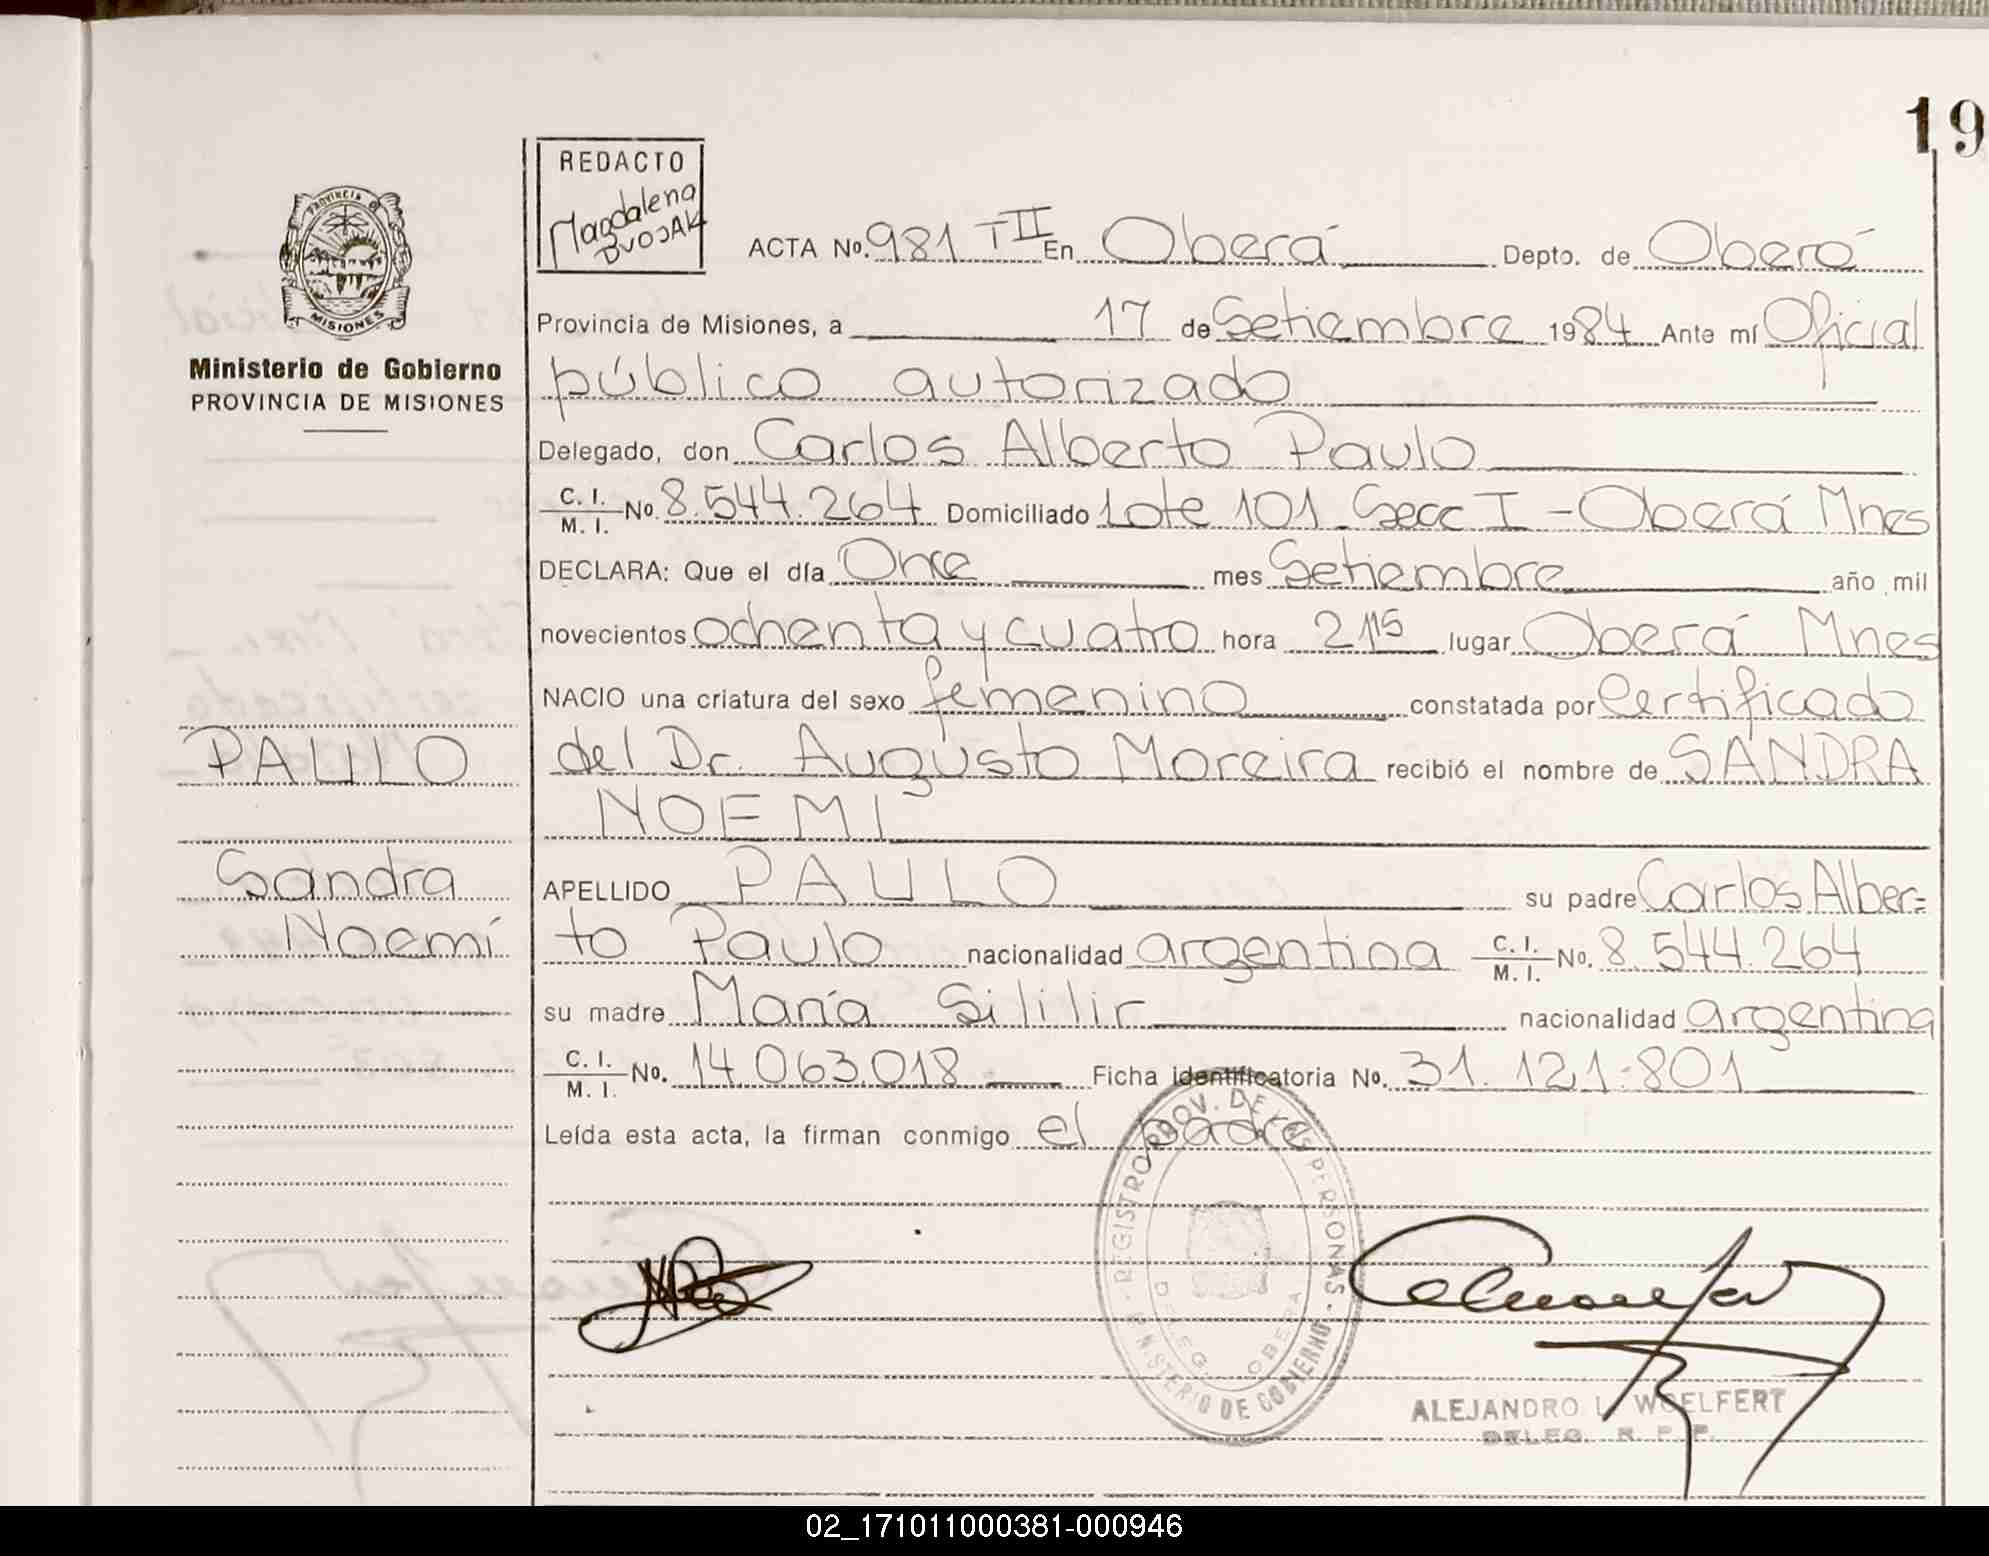 19
REDACTO
Magdalena
DVOJAK
PROVINCIA D
MISIONES
Ministerio de Gobierno
PROVINCIA DE MISIONES
ACTA No. 981 T II En Oberá Depto. de Oberá
Provincia de Misiones, a 17 de Setiembre 1984 Ante mí Oficial
público autorizado
Delegado, don Carlos Alberto Paulo
C. I. / M. I. No. 8.544.264 Domiciliado Lote 101 Secc I - Oberá Mnes
DECLARA: Que el día Once mes Setiembre año mil
novecientos ochenta y cuatro hora 2115 lugar Oberá Mnes
NACIO una criatura del sexo femenino constatada por Certificado
PAULO
del Dr. Augusto Moreira recibió el nombre de SANDRA
NOEMI
Sandra
Noemí
APELLIDO PAULO su padre Carlos Alber=
to Paulo nacionalidad argentina C. I. / M. I. No. 8.544.264
su madre María Sililir nacionalidad argentina
C. I. / M. I. No. 14.063.018 Ficha identificatoria No. 31.121.801
Leída esta acta, la firman conmigo el padre
REGISTRO PROV. DE LAS PERSONAS · MINISTERIO DE GOBIERNO ·
DELEG. OBERA
ALEJANDRO L. WOELFERT
DELEG. R. P. P.
02_171011000381-000946